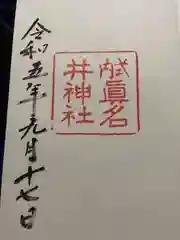 眞名
井神社
令和五年元月十七日